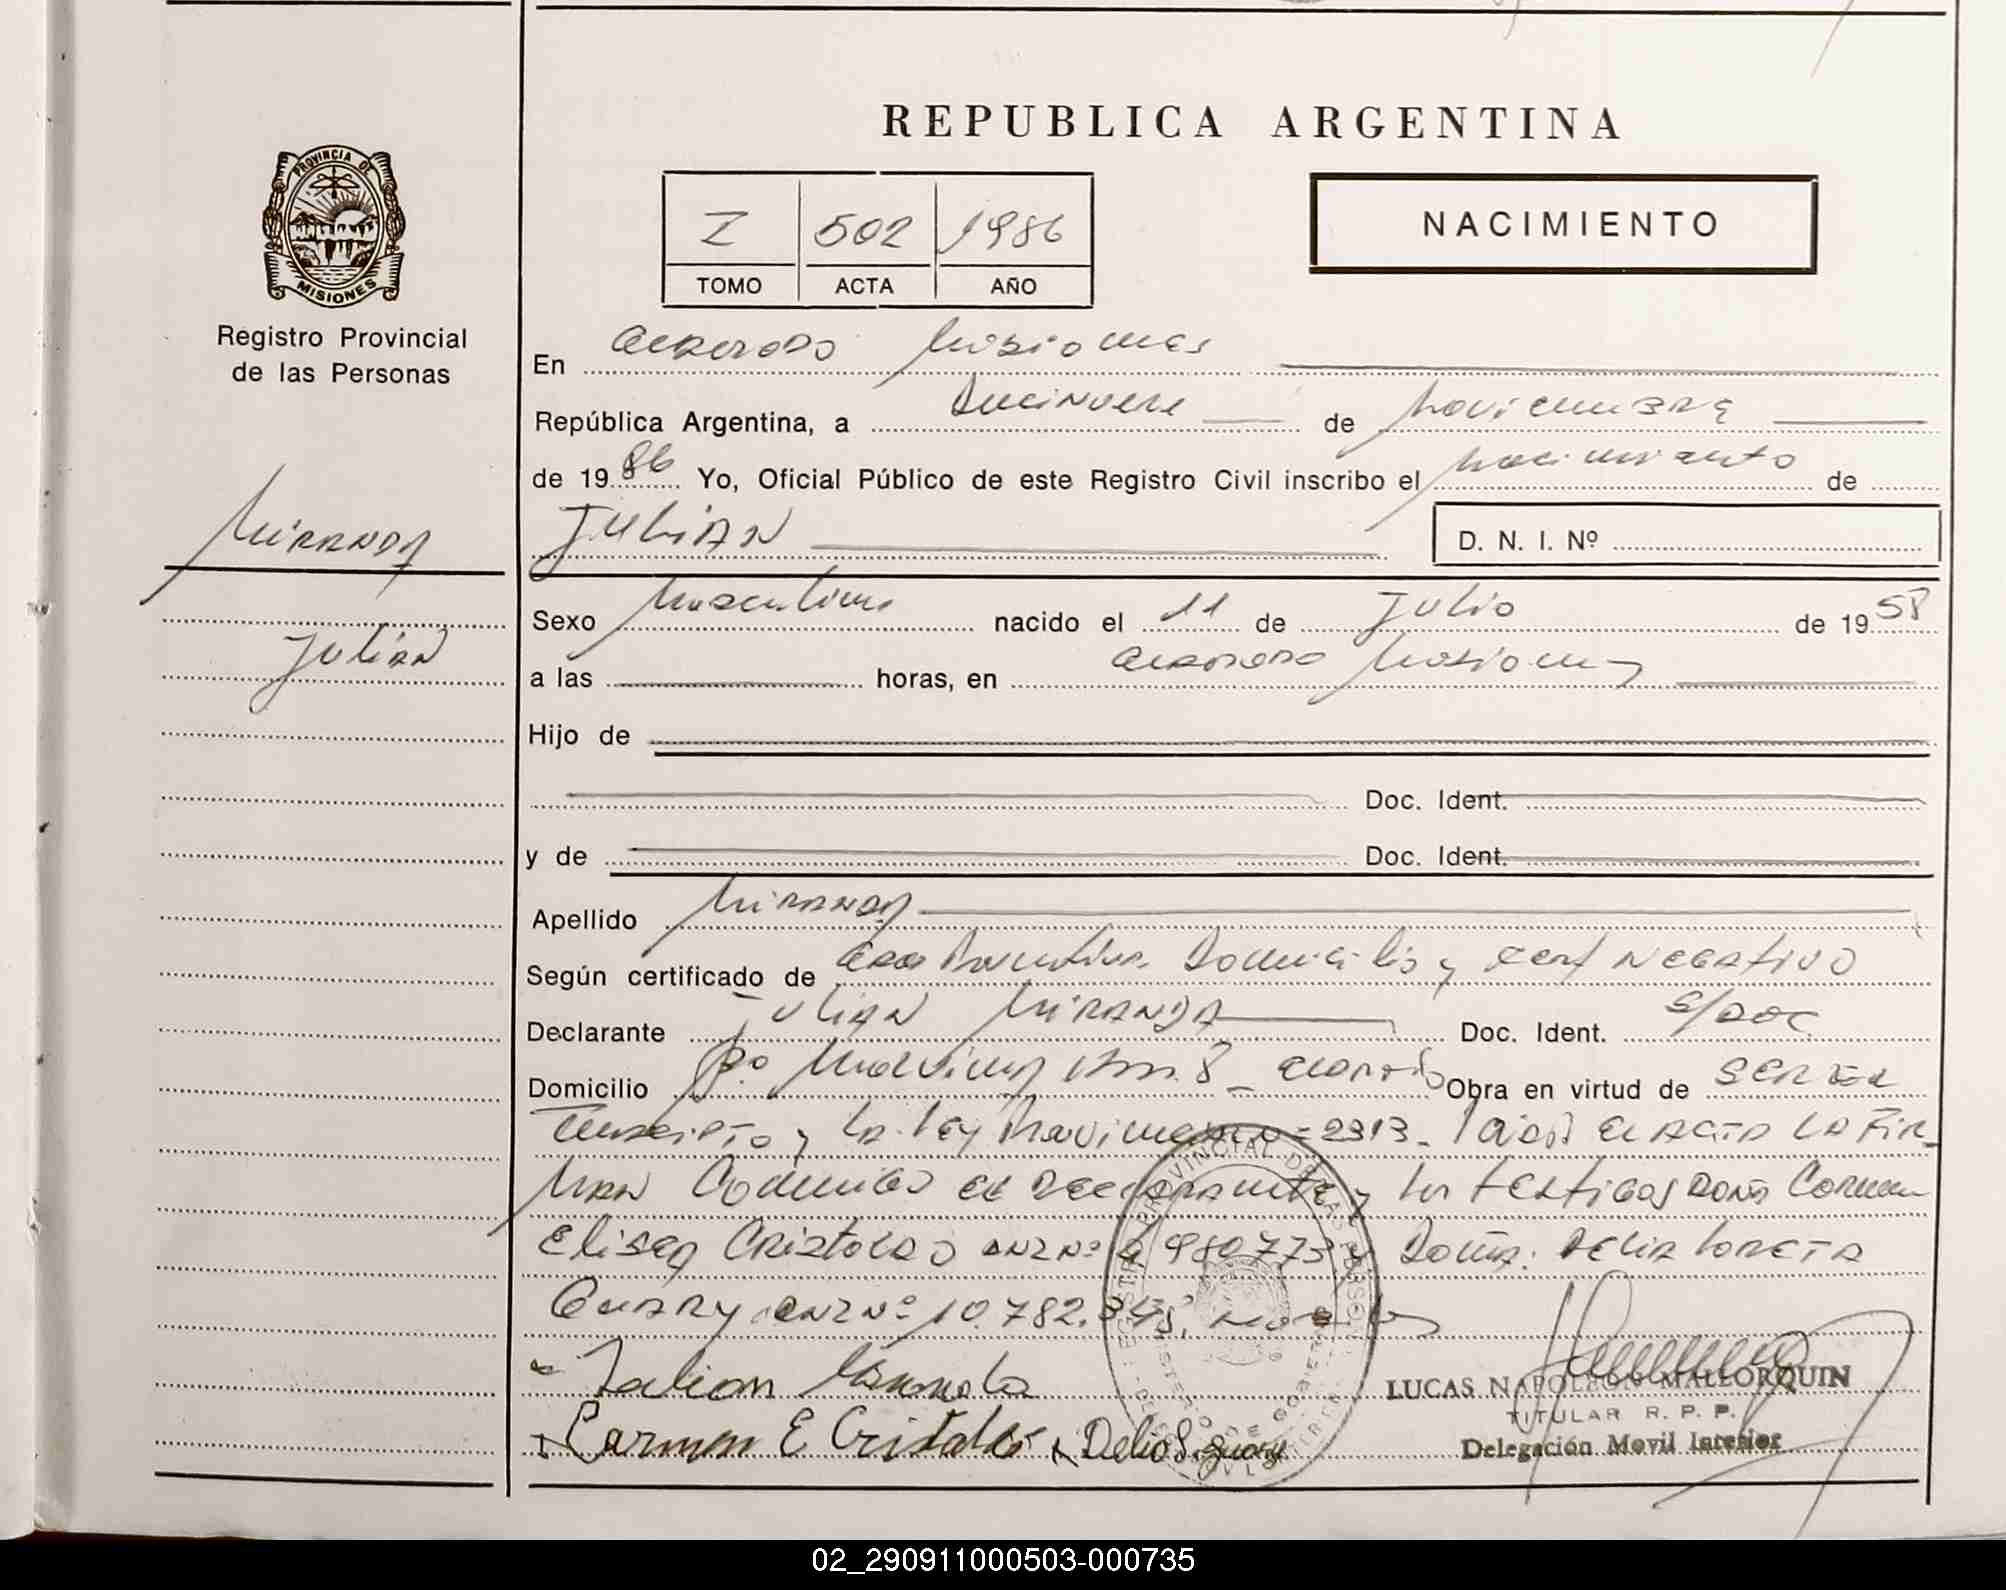 REPUBLICA ARGENTINA
PROVINCIA DE
MISIONES
Registro Provincial
de las Personas
Z 502 1986
TOMO ACTA AÑO
NACIMIENTO
En Misiones
República Argentina, a Diecinueve de Noviembre
de 1986 Yo, Oficial Público de este Registro Civil inscribo el nacimiento de
JULIAN D. N. I. Nº
MIRANDA
JULIAN
Sexo Masculino nacido el 11 de Julio de 1958
a las horas, en Misiones
Hijo de
Doc. Ident.
y de Doc. Ident.
Apellido MIRANDA
Según certificado de Domicilio y cert NEGATIVO
Declarante JULIAN MIRANDA Doc. Ident. S/DOC.
Domicilio Obra en virtud de
y la Ley Provincial Nº 2313. Leída el ACTA LA FIR-
MAN Conmigo el Declarante y los testigos DOÑA Carmen
Elisea Cristaldo DNI Nº 980773 y Doña: DELIA LORETA
DNI Nº 10.782.
Julian Miranda
Carmen E Cristaldo Delia L. Guary
LUCAS NAPOLEON MALLORQUIN
TITULAR R. P. P.
Delegación Movil Interior
02_290911000503-000735